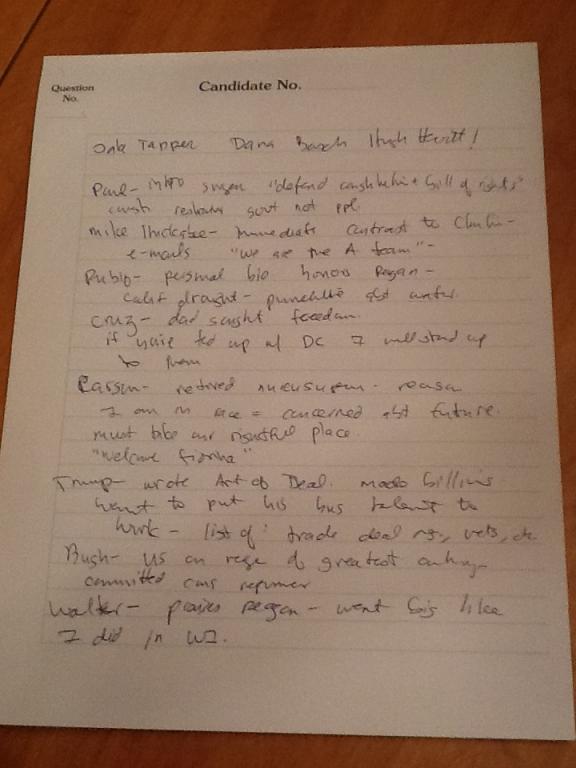 Question
No.
Candidate No.
Tapper Dana Bash Hugh Hewitt!
Paul- intro surgeon "defend constitution + bill of rights"
const. restrains govt not ppl.
Mike Huckabee- immediate contrast to Clinton-
e-mails "we are the A team"-
Rubio- personal bio honors Reagan-
Calif drought- punchline abt water.
Cruz- dad sought freedom.
if you're fed up w/ DC I will stand up
to them
Carson- retired neurosurgeon- reason
I am in race = concerned abt future.
must take our rightful place.
"welcome Fiorina"
Trump- wrote Art of Deal. made billions
want to put his bus talent to
work- list of: trade deal vets, etc
Bush- US on verge of greatest century-
committed cons reformer
Walker- praises Reagan- went big like
I did in WI.